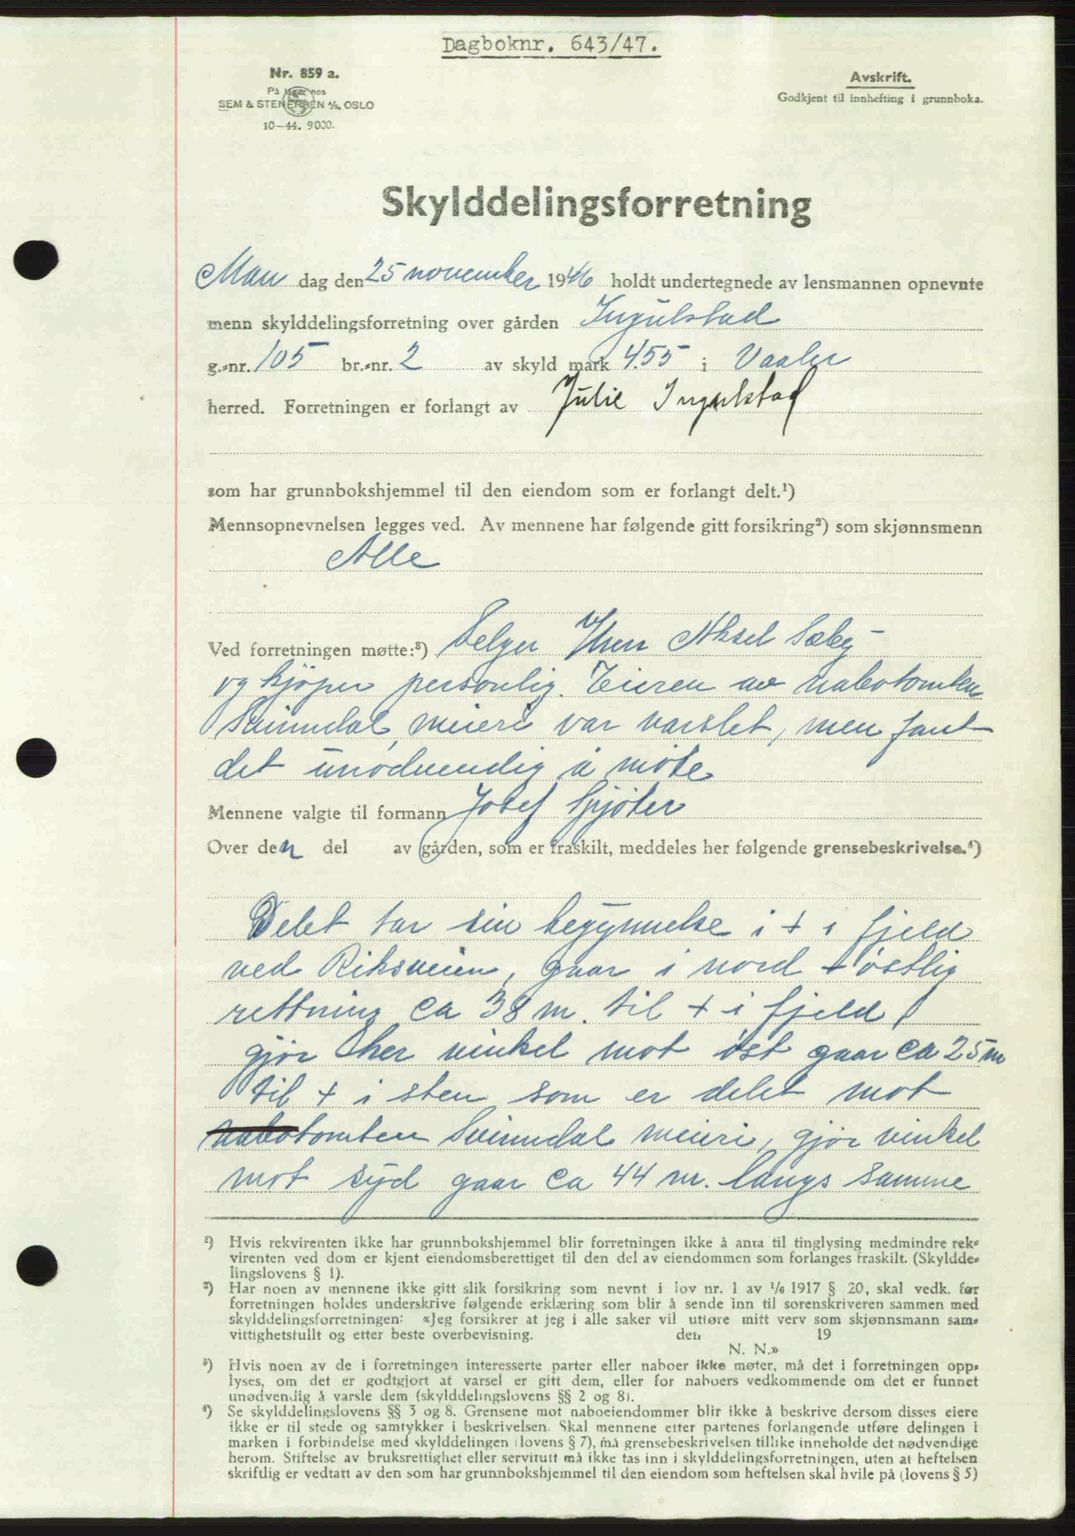 Dagboknr. 643/47.
Nr. 859 a.
På lager hos
SEM & STENERSEN A/S, OSLO
10—44. 9000.
Avskrift.
Godkjent til innhefting i grunnboka.
Skylddelingsforretning
Man dag den 25 november 1946 holdt undertegnede av lensmannen opnevnte
menn skylddelingsforretning over gården Ingulstad
g.-nr. 105 br.-nr. 2 av skyld mark 4.55 i Vaaler
herred. Forretningen er forlangt av Julie Ingulstad
som har grunnbokshjemmel til den eiendom som er forlangt delt.¹)
Mennsopnevnelsen legges ved. Av mennene har følgende gitt forsikring²) som skjønnsmenn
Alle
Ved forretningen møtte:³) Selger Aksel Sæby
og kjøper personlig. Eieren av nabotomten
Svinndal meieri var varslet, men fant
det unødvendig å møte
Mennene valgte til formann Josef Gjøler
Over den del av gården, som er fraskilt, meddeles her følgende grensebeskrivelse.⁴)
Delet tar sin begynnelse i + i fjeld
ved Riksveien, gaar i nord + østlig
rettning ca 38 m. til + i fjeld,
gjør her vinkel mot øst gaar ca 25 m
til + i sten som er delet mot
nabotomten Svinndal meieri, gjør vinkel
mot syd gaar ca 44 m. langs samme
¹) Hvis rekvirenten ikke har grunnbokshjemmel blir forretningen ikke å anta til tinglysing medmindre rek-
virenten ved dom er kjent eiendomsberettiget til den del av eiendommen som forlanges fraskilt. (Skyldde-
lingslovens § 1).
²) Har noen av mennene ikke gitt slik forsikring som nevnt i lov nr. 1 av 1/6 1917 § 20, skal vedk. før
forretningen holdes underskrive følgende erklæring som blir å sende inn til sorenskriveren sammen med
skylddelingsforretningen: «Jeg forsikrer at jeg i alle saker vil utføre mitt verv som skjønnsmann sam-
vittighetsfullt og etter beste overbevisning. den 19
N. N.»
³) Hvis noen av de i forretningen interesserte parter eller naboer ikke møter, må det i forretningen opp-
lyses, om det er godtgjort at varsel er gitt dem, eller for naboers vedkommende om det er funnet
unødvendig å varsle dem (skylddelingslovens §§ 2 og 8).
⁴) Se skylddelingslovens §§ 3 og 8. Grensene mot naboeiendommer blir ikke å beskrive dersom disses eiere
ikke er til stede og samtykker i beskrivelsen. Skal mennene etter partenes forlangende utføre delingen i
marken i forbindelse med skylddelingen (lovens § 7), må grensebeskrivelsen tillike inneholde det nødvendige
herom. Stiftelse av bruksrettighet eller servitutt må ikke tas inn i skylddelingsforretningen, uten at heftelsen
skriftlig er vedtatt av den som har grunnbokshjemmel til den eiendom som heftelsen skal hvile på (lovens § 5)